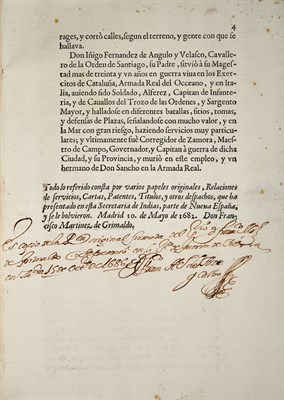 4
rages, y cortò calles, segun el terreno, y gente con que se
hallava.
Don Iñigo Fernandez de Angulo y Velasco, Cavalle-
ro de la Orden de Santiago, su Padre, sirviò à su Mages-
tad mas de treinta y vn años en guerra viua en los Exer-
citos de Cataluña, Armada Real del Oceano, y en Ita-
lia, auiendo sido Soldado, Alferez, Capitan de Infante-
ria, y de Cauallos del Trozo de las Ordenes, y Sargento
Mayor, y halladose en diferentes batallas, sitios, tomas,
y defensas de Plazas, señalandose con mucho valor, y en
la Mar con gran riesgo, haziendo servicios muy particu-
lares; y vltimamente fuè Corregidor de Zamora, Maes-
tro de Campo, Governador, y Capitan à guerra de dicha
Ciudad, y su Provincia, y muriò en este empleo, y vn
hermano de Don Sancho en la Armada Real.
Todo lo referido consta por varios papeles originales, Relaciones
de servicios, Cartas, Patentes, Titulos, y otros despachos, que
ha presentado en esta Secretaria de Indias, parte de Nueva España,
y se le bolvieron. Madrid 10. de Mayo de 1682. Don Fran-
cisco Martinez, de Grimaldo.
Es copia de la original firmada del
de Grimaldo
en 15 de Oct de 1686
Juan
y Calvo